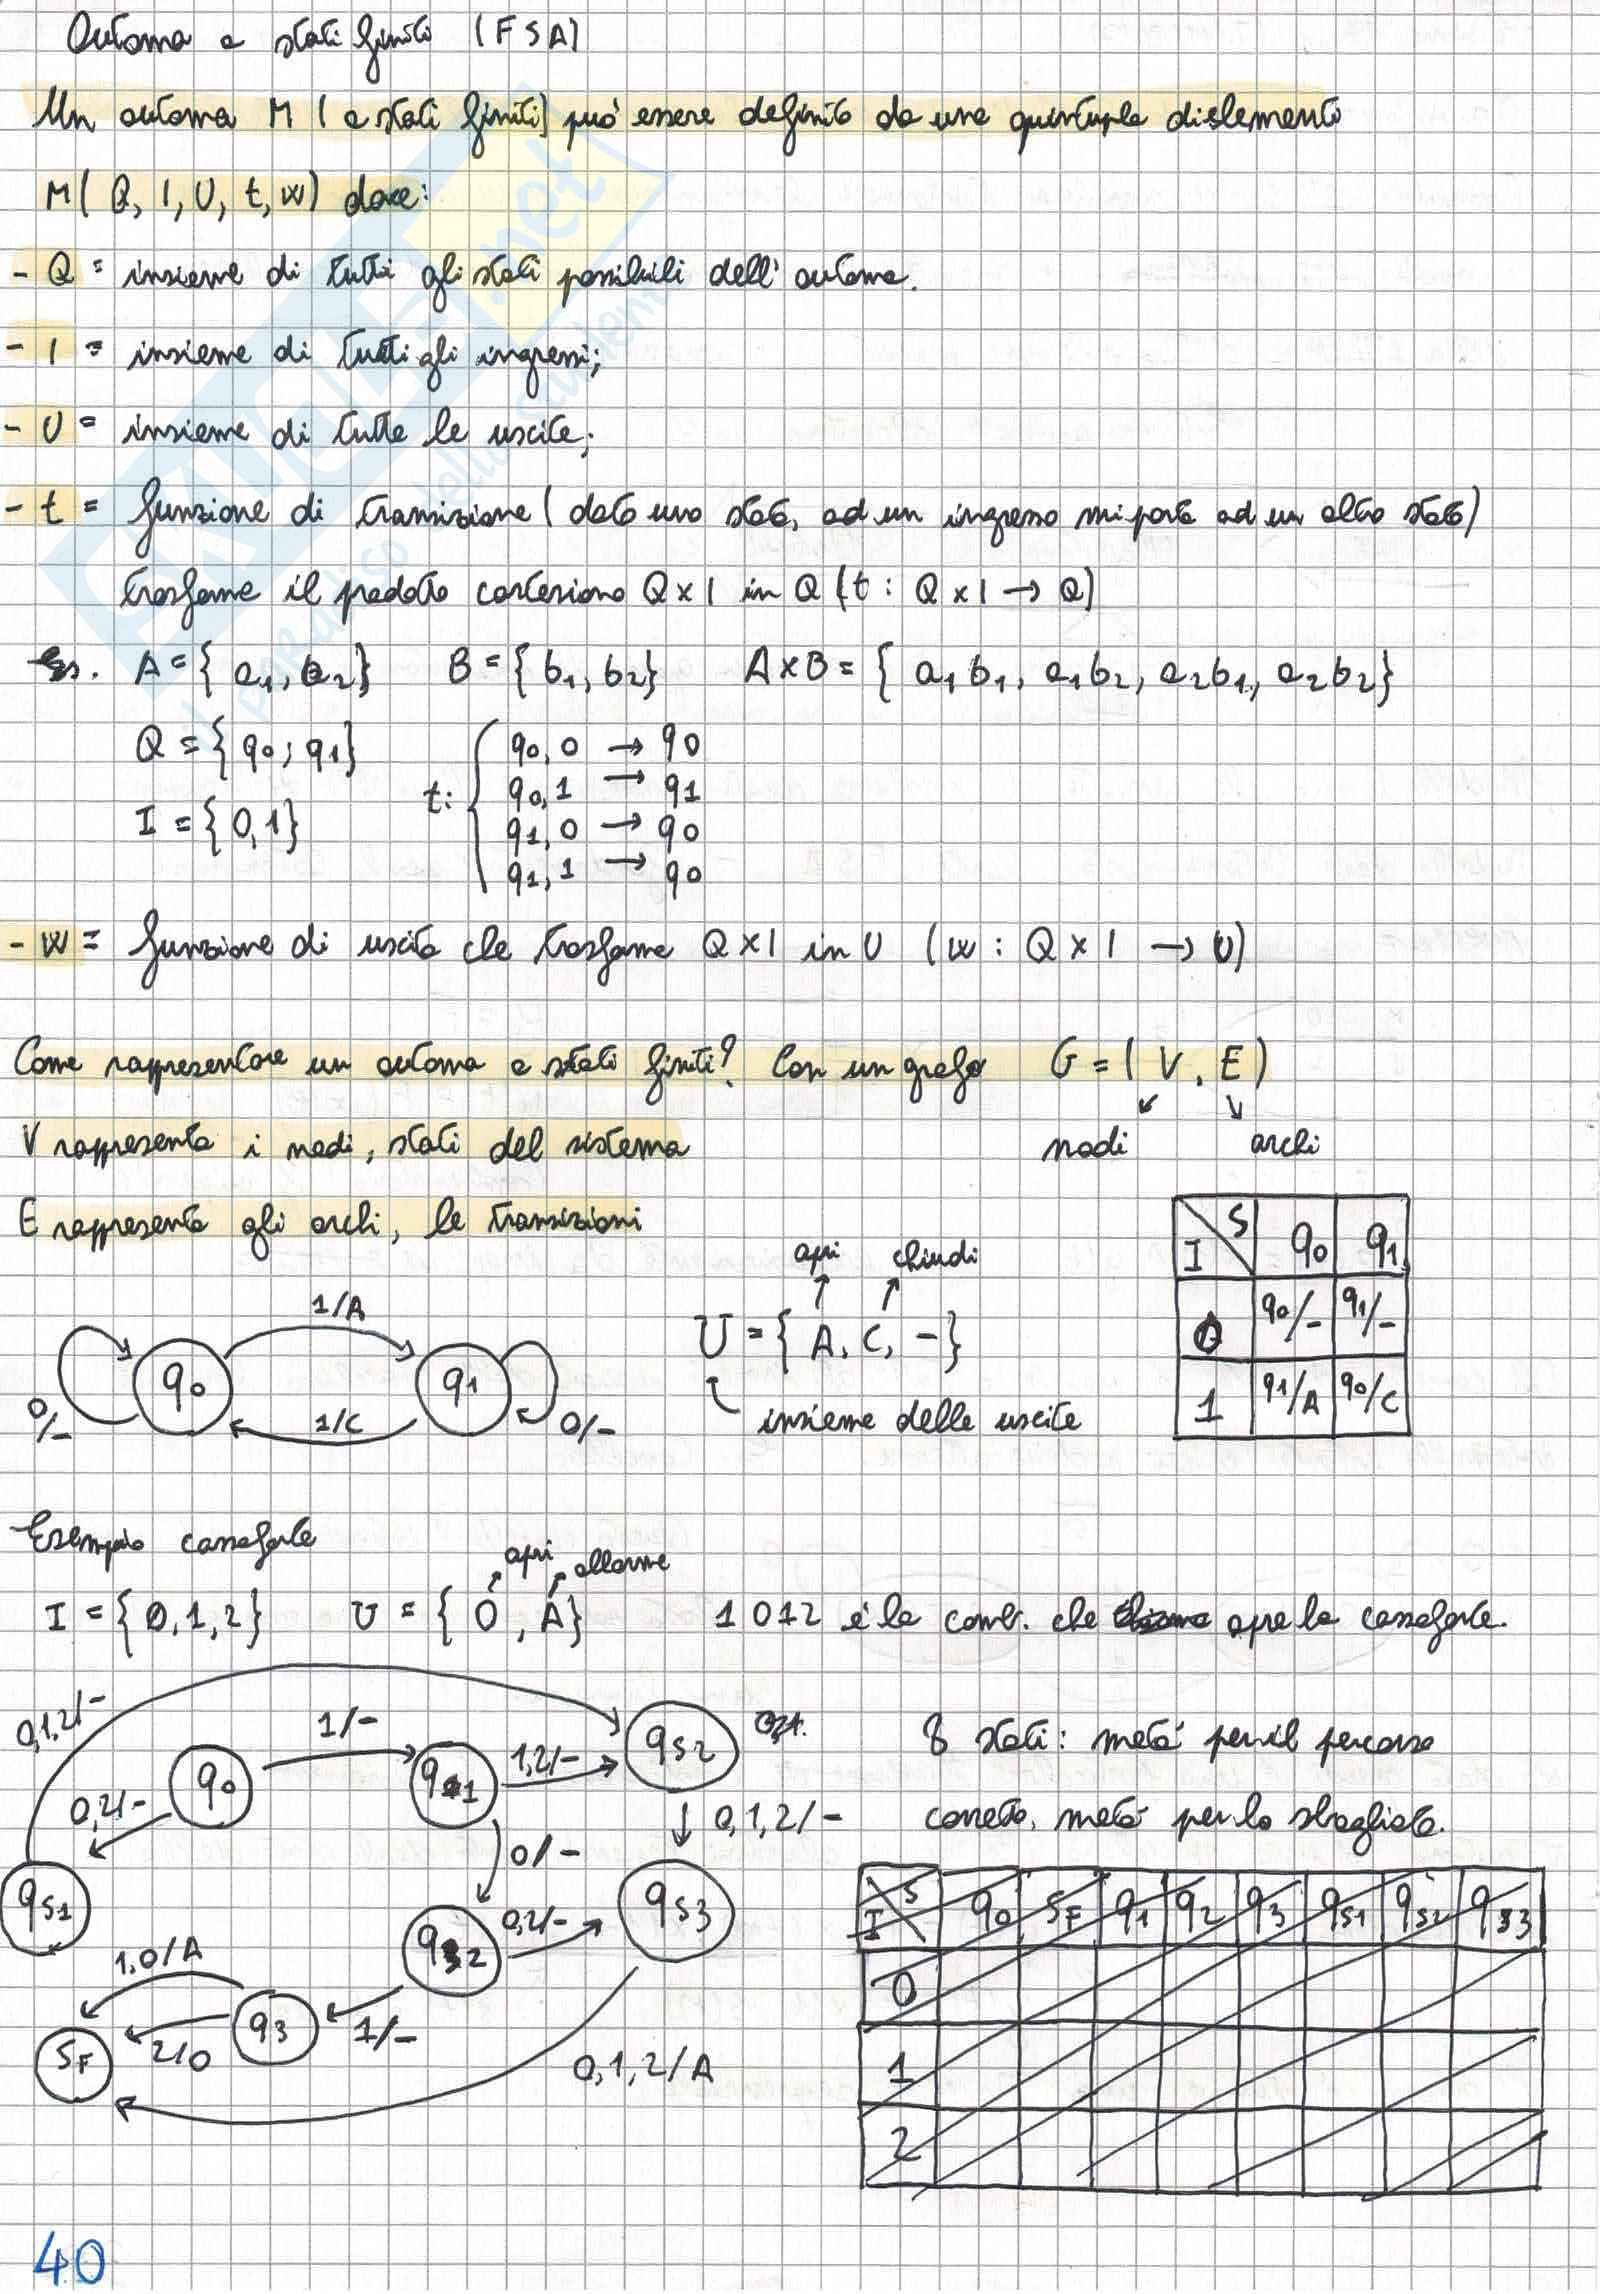 Automa a stati finiti (FSA)
Un automa M (a stati finiti) può essere definito da una quintupla di elementi
M( Q, I, U, t, w) dove:
- Q = insieme di tutti gli stati possibili dell'automa.
- I = insieme di tutti gli ingressi;
- U = insieme di tutte le uscite;
- t = funzione di transizione (dato uno stato, ad un ingresso mi porta ad un altro stato)
trasforma il prodotto cartesiano Q x I in Q (t : Q x I → Q)
Es. A = { a1, a2} B = { b1, b2} A x B = { a1 b1, a1 b2, a2 b1, a2 b2}
Q = { q0; q1}
I = { 0, 1}
t:
q0, 0 → q0
q0, 1 → q1
q1, 0 → q0
q1, 1 → q0
- w = funzione di uscita che trasforma Q x I in U (w : Q x I → U)
Come rappresentare un automa a stati finiti? Con un grafo G = ( V, E )
nodi archi
V rappresenta i nodi, stati del sistema
E rappresenta gli archi, le transizioni
1/A
0/-
q0
q1
1/C
0/-
apri chiudi
U = { A, C, -}
insieme delle uscite
I S q0 q1
0 q0/- q1/-
1 q1/A q0/C
Esempio cassaforte
apri allarme
I = { 0, 1, 2} U = { O, A} 1 0 1 2 è la comb. che apre la cassaforte.
0,1,2/-
1/-
q0
q1
1,2/-
qs2
0,2/-
0/-
0,1,2/-
8 stati: metà per il percorso
corretto, metà per lo sbagliato.
qs1
q2
0,2/-
qs3
1,0/A
q3
1/-
2/O
SF
0,1,2/A
I S q0 SF q1 q2 q3 qs1 qs2 qs3
0
1
2
40
il paradiso dello studente
.net